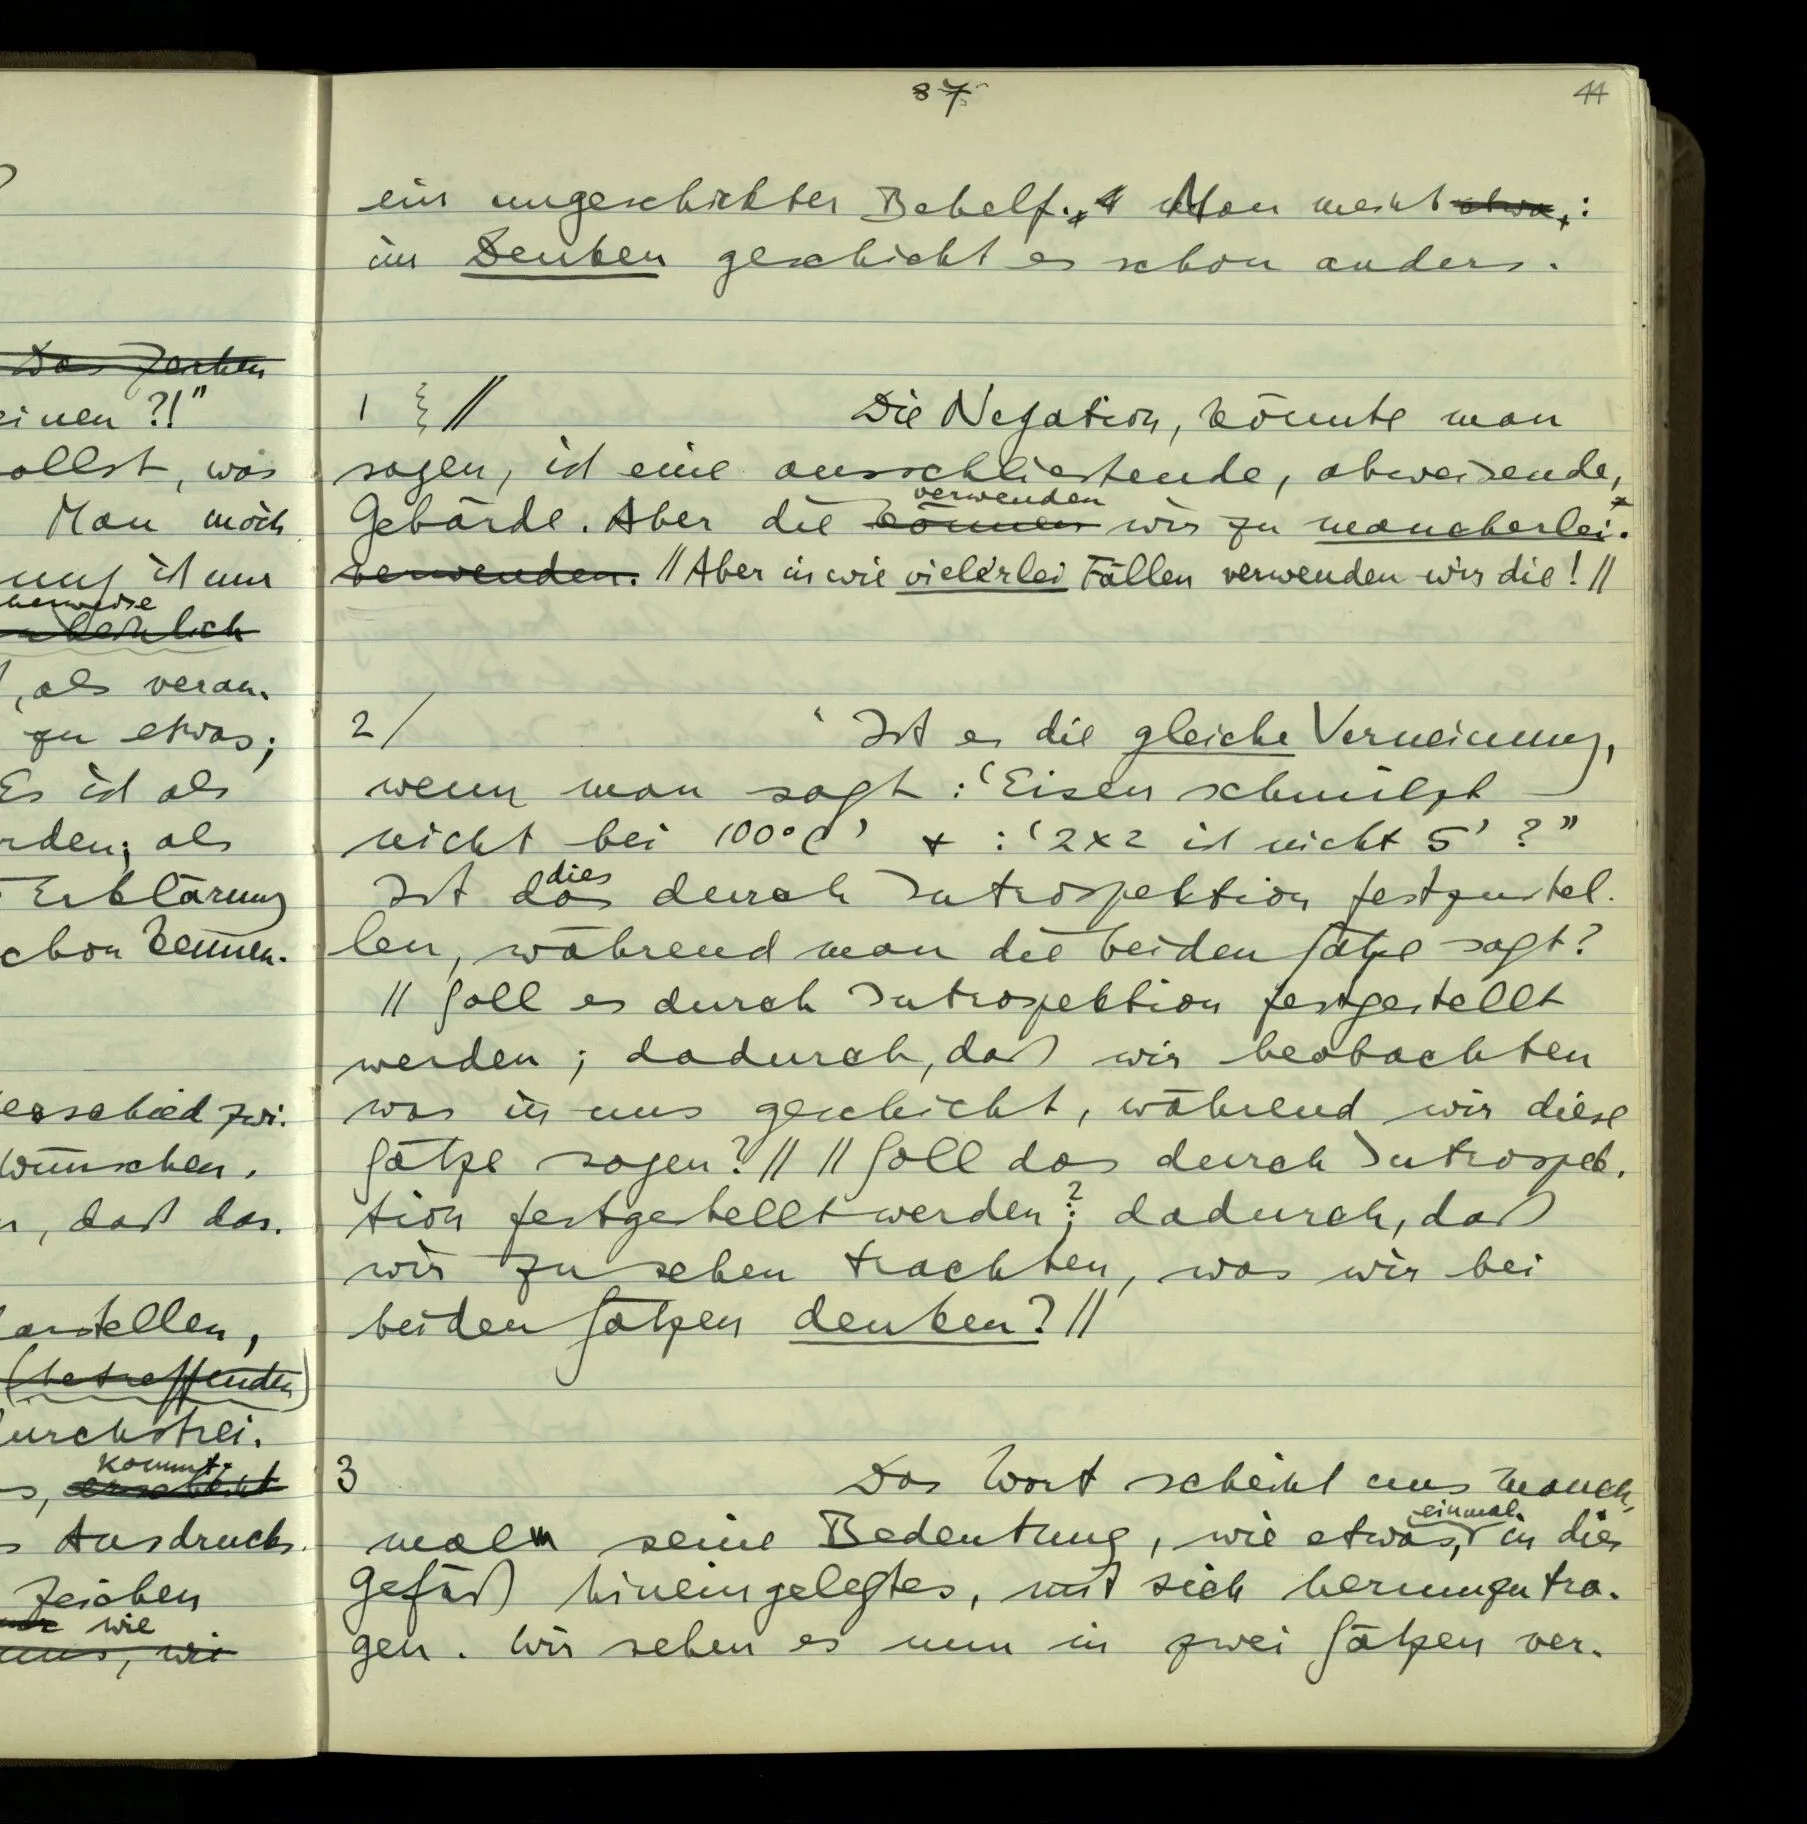 Das Zeichen
einen ?!"
ollst, was
Man möch
ung ist nur
erweise
, als veran-
zu etwas;
Es ist als
rden; als
Erklärung
schon kennen.
erschied zwi-
wünschen,
n, daß das.
arstellen,
(betreffenden)
durchstrei-
kommt
s, erscheint
s Ausdrucks
Zeichen
wie
uns, wie
87
44
ein ungeschickter Behelf., Man meint etwa, :
im Denken geschieht es schon anders.
1 ⌇ // Die Negation, könnte man
sagen, ist eine ausschließende, abweisende,
verwenden
Gebärde. Aber die können wir zu mancherlei.
verwenden. // Aber in wie vielerlei Fällen verwenden wir die! //
2 / ‘Ist es die gleiche Verneinung,
wenn man sagt: ‘Eisen schmilzt
nicht bei 100°C’ + : ‘2x2 ist nicht 5’ ?”
dies
Ist das durch Introspektion festzustel-
len, während man die beiden Sätze sagt?
// Soll es durch Introspektion festgestellt
werden; dadurch, daß wir beobachten
was in uns geschieht, während wir diese
Sätze sagen? // // Soll das durch Introspek-
tion festgestellt werden?; dadurch, daß
wir zu sehen trachten, was wir bei
beiden Sätzen denken? //
3 Das Wort scheint uns manch-
einmal
mal seine Bedeutung, wie etwas, in dies
Gefäß hineingelegtes, mit sich herumzutra-
gen. Wir sehen es nun in zwei Sätzen ver-